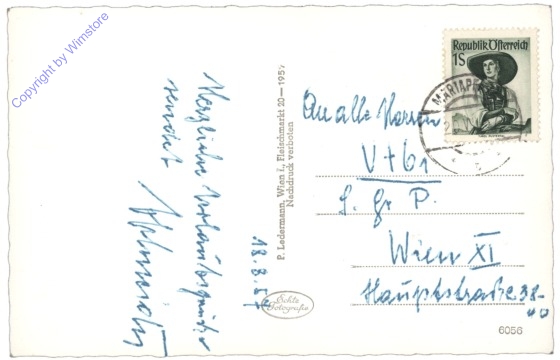 Copyright by Wimstore
Herzliche Urlaubsgrüße
sendet
18.8.57
P. Ledermann, Wien I., Fleischmarkt 20—195
Nachdruck verboten
Echte
Fotografie
Republik Österreich
1S
MARIAP
An alle Herren
V+b1
S. Gr P.
Wien XI
Hauptstraße 38-
40
6056